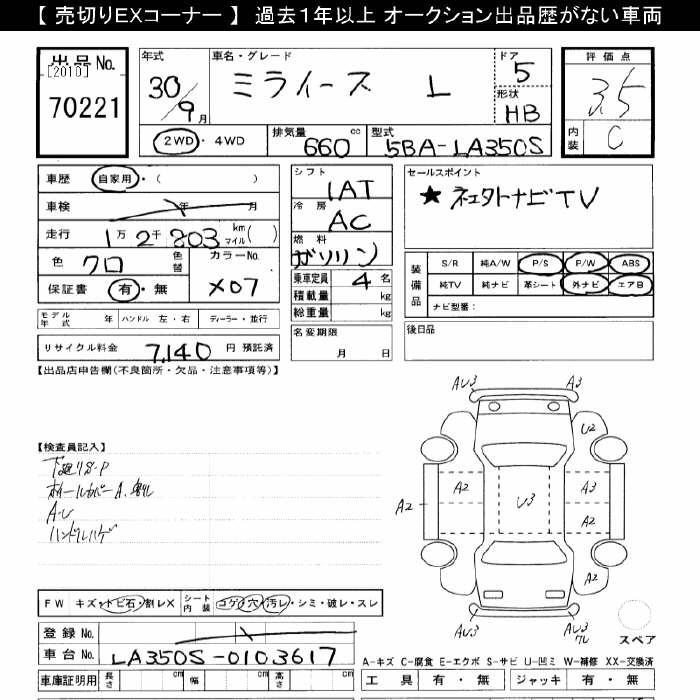 【 売切りEXコーナー 】 過去１年以上 オークション出品歴がない車両
出品No.
[2010]
70221
年式
30/9月
車名・グレード
ミライース L
ドア
5
形状
HB
評価点
3.5
内装
C
2WD ・ 4WD
排気量
660 cc
型式
5BA-LA350S
車歴 自家用・( )
車検 年 月
走行 1万2千803 km マイル( )
色 クロ 色替 カラーNo. X07
保証書 有・無
シフト
IAT
冷房
AC
燃料
ガソリン
乗車定員 4 名
積載量 kg
総重量 kg
セールスポイント
★ ネェクトナビTV
装備品
S/R 純A/W P/S P/W ABS
純TV 純ナビ 革シート 外ナビ エアB
ナビ型番：
モデル年式 年 ハンドル 左・右 ディーラー・並行
リサイクル料金 7,140 円 預託済
名変期限
月 日
後日品
【出品店申告欄(不良箇所・欠品・注意事項等)】
【検査員記入】
下廻りS-P
ホイールカバーA.割レ
A-U
ハンドルハゲ
AU3
A3
U2
A2
A2
A3
U3
A2
A2
AU3
AU3
ワレ
スペア
FW キズ・トビ石・割レX
シート内装 コゲ・穴・汚レ・シミ・破レ・スレ
登録No.
車台No. LA350S-0103617
車庫証明用 長さ cm 幅 cm 高さ cm
A-キズ C-腐食 E-エクボ S-サビ U-凹ミ W-補修 XX-交換済
工具 有・無 ジャッキ 有・無